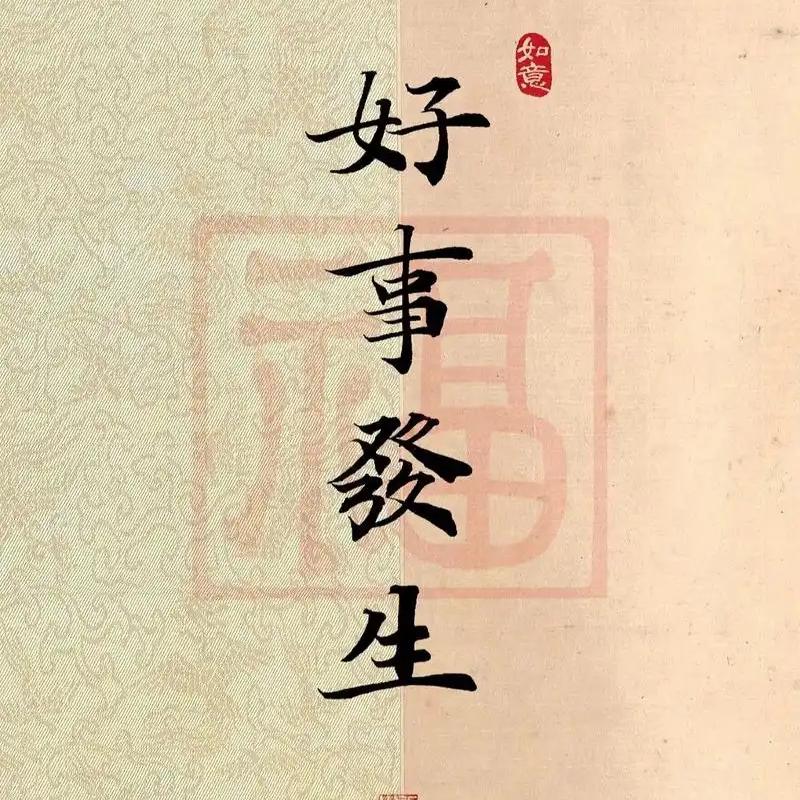 如意
好事發生
福